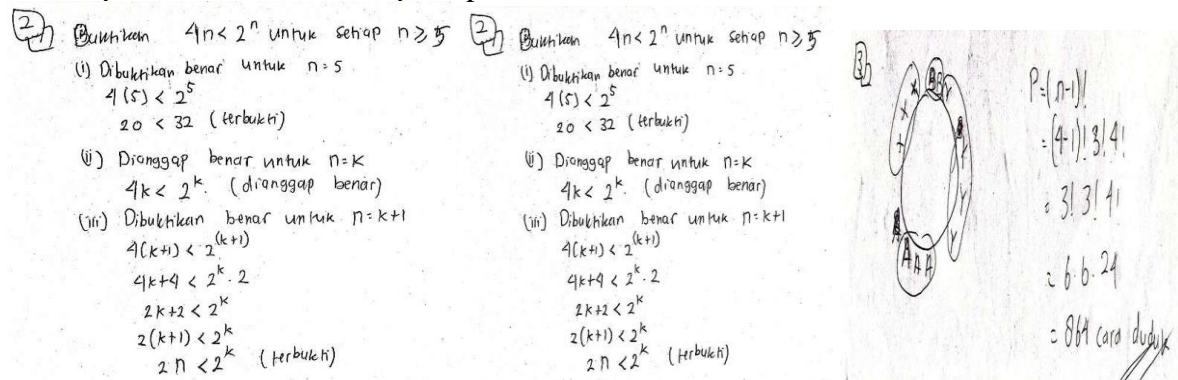 2
Buktikan 4n < 2ⁿ untuk setiap n ≥ 5
(i) Dibuktikan benar untuk n = 5
4(5) < 2⁵
20 < 32 (terbukti)
(ii) Dianggap benar untuk n = k
4k < 2ᵏ. (dianggap benar)
(iii) Dibuktikan benar untuk n = k+1
4(k+1) < 2⁽ᵏ⁺¹⁾
4k+4 < 2ᵏ . 2
2k+2 < 2ᵏ
2(k+1) < 2ᵏ
2n < 2ᵏ (terbukti)
2
Buktikan 4n < 2ⁿ untuk setiap n ≥ 5
(i) Dibuktikan benar untuk n = 5
4(5) < 2⁵
20 < 32 (terbukti)
(ii) Dianggap benar untuk n = k
4k < 2ᵏ. (dianggap benar)
(iii) Dibuktikan benar untuk n = k+1
4(k+1) < 2⁽ᵏ⁺¹⁾
4k+4 < 2ᵏ . 2
2k+2 < 2ᵏ
2(k+1) < 2ᵏ
2n < 2ᵏ (terbukti)
3
P = (n-1)!
= (4-1)! 3! 4!
= 3! 3! 4!
= 6 . 6 . 24
= 864 cara duduk
X X X
B B
Y Y Y Y
A A A